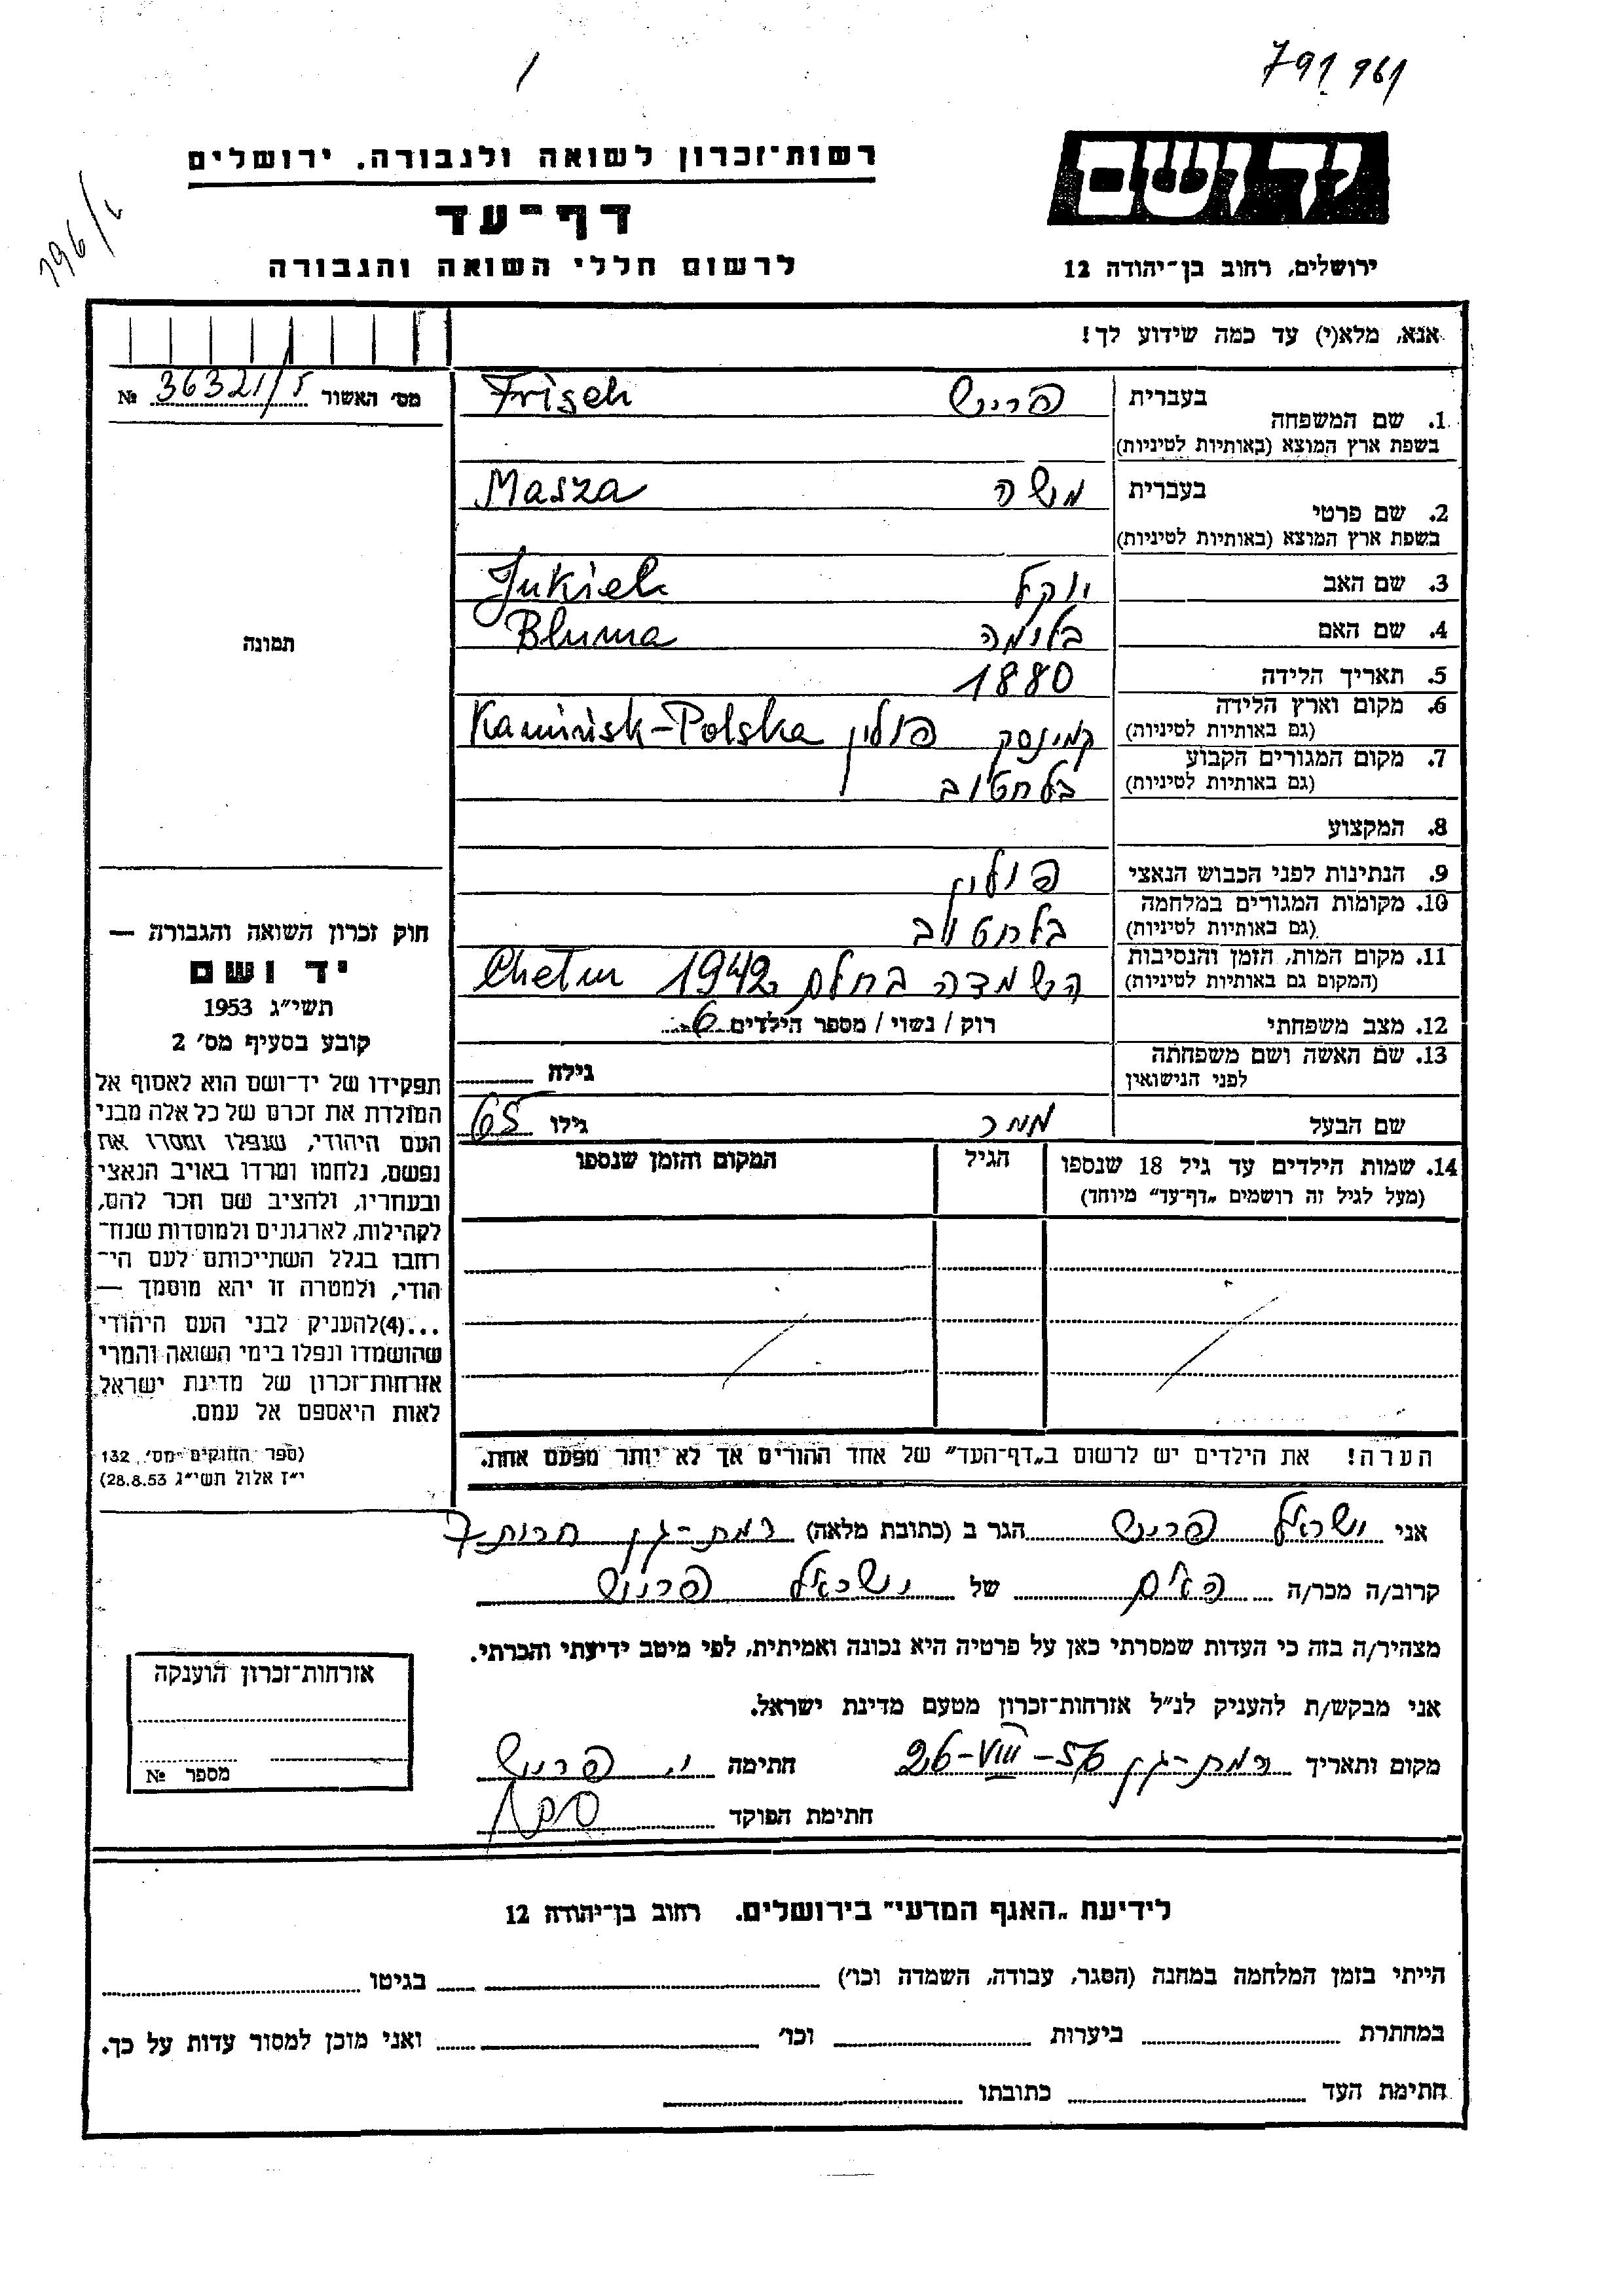 791 961
196/
יד ושם
ירושלים, רחוב בן־יהודה 12
רשות־זכרון לשואה ולגבורה. ירושלים
דף־עד
לרשום חללי השואה והגבורה
אנא, מלא(י) עד כמה שידוע לך!
מס׳ האשור 36321/5 №
תמונה
1. שם המשפחה בעברית פריש Frisch
בשפת ארץ המוצא (באותיות לטיניות)
2. שם פרטי בעברית משה Masza
בשפת ארץ המוצא (באותיות לטיניות)
3. שם האב יוקל Jukiel
4. שם האם בלומה Bluma
5. תאריך הלידה 1880
6. מקום וארץ הלידה (גם באותיות לטיניות) קמינסק פולין Kamińsk-Polska
7. מקום המגורים הקבוע (גם באותיות לטיניות) בלחטוב
8. המקצוע
9. הנתינות לפני הכבוש הנאצי פולין
10. מקומות המגורים במלחמה (גם באותיות לטיניות) בלחטוב
11. מקום המות, הזמן והנסיבות (המקום גם באותיות לטיניות) השמדה בחלם 1942 Chełm
12. מצב משפחתי רוק / נשוי / מספר הילדים 6
13. שם האשה ושם משפחתה לפני הנישואין גילה
שם הבעל גילו 65
14. שמות הילדים עד גיל 18 שנספו
(מעל לגיל זה רושמים „דף־עד״ מיוחד)
הגיל
המקום והזמן שנספו
הערה! את הילדים יש לרשום ב„דף־העד״ של אחד ההורים אך לא יותר מפעם אחת.
חוק זכרון השואה והגבורה —
יד ושם
תשי״ג 1953
קובע בסעיף מס׳ 2
תפקידו של יד־ושם הוא לאסוף אל
המולדת את זכרם של כל אלה מבני
העם היהודי, שנפלו ומסרו את
נפשם, נלחמו ומרדו באויב הנאצי
ובעוזריו, ולהציב שם וזכר להם,
לקהילות, לארגונים ולמוסדות שנח־
רבו בגלל השתייכותם לעם הי־
הודי, ולמטרה זו יהא מוסמך —
...(4)להעניק לבני העם היהודי
שהושמדו ונפלו בימי השואה והמרי
אזרחות־זכרון של מדינת ישראל
לאות היאספם אל עמם.
(ספר החוקים מס׳ 132,
י״ז אלול תשי״ג 28.8.53)
אני ישראל פריש הגר ב (כתובת מלאה) רמת-גן חרות 7
קרוב/ה מכר/ה של ישראל פריש
מצהיר/ה בזה כי העדות שמסרתי כאן על פרטיה היא נכונה ואמיתית, לפי מיטב ידיעתי והכרתי.
אני מבקש/ת להעניק לנ״ל אזרחות־זכרון מטעם מדינת ישראל.
מקום ותאריך רמת-גן 26-VIII-56 חתימה י. פריש
חתימת הפוקד
אזרחות־זכרון הוענקה
מספר №
לידיעת „האגף המדעי״ בירושלים. רחוב בן־יהודה 12
הייתי בזמן המלחמה במחנה (הסגר, עבודה, השמדה וכו׳) בגיטו
במחתרת ביערות וכו׳ ואני מוכן למסור עדות על כך.
חתימת העד כתובתו